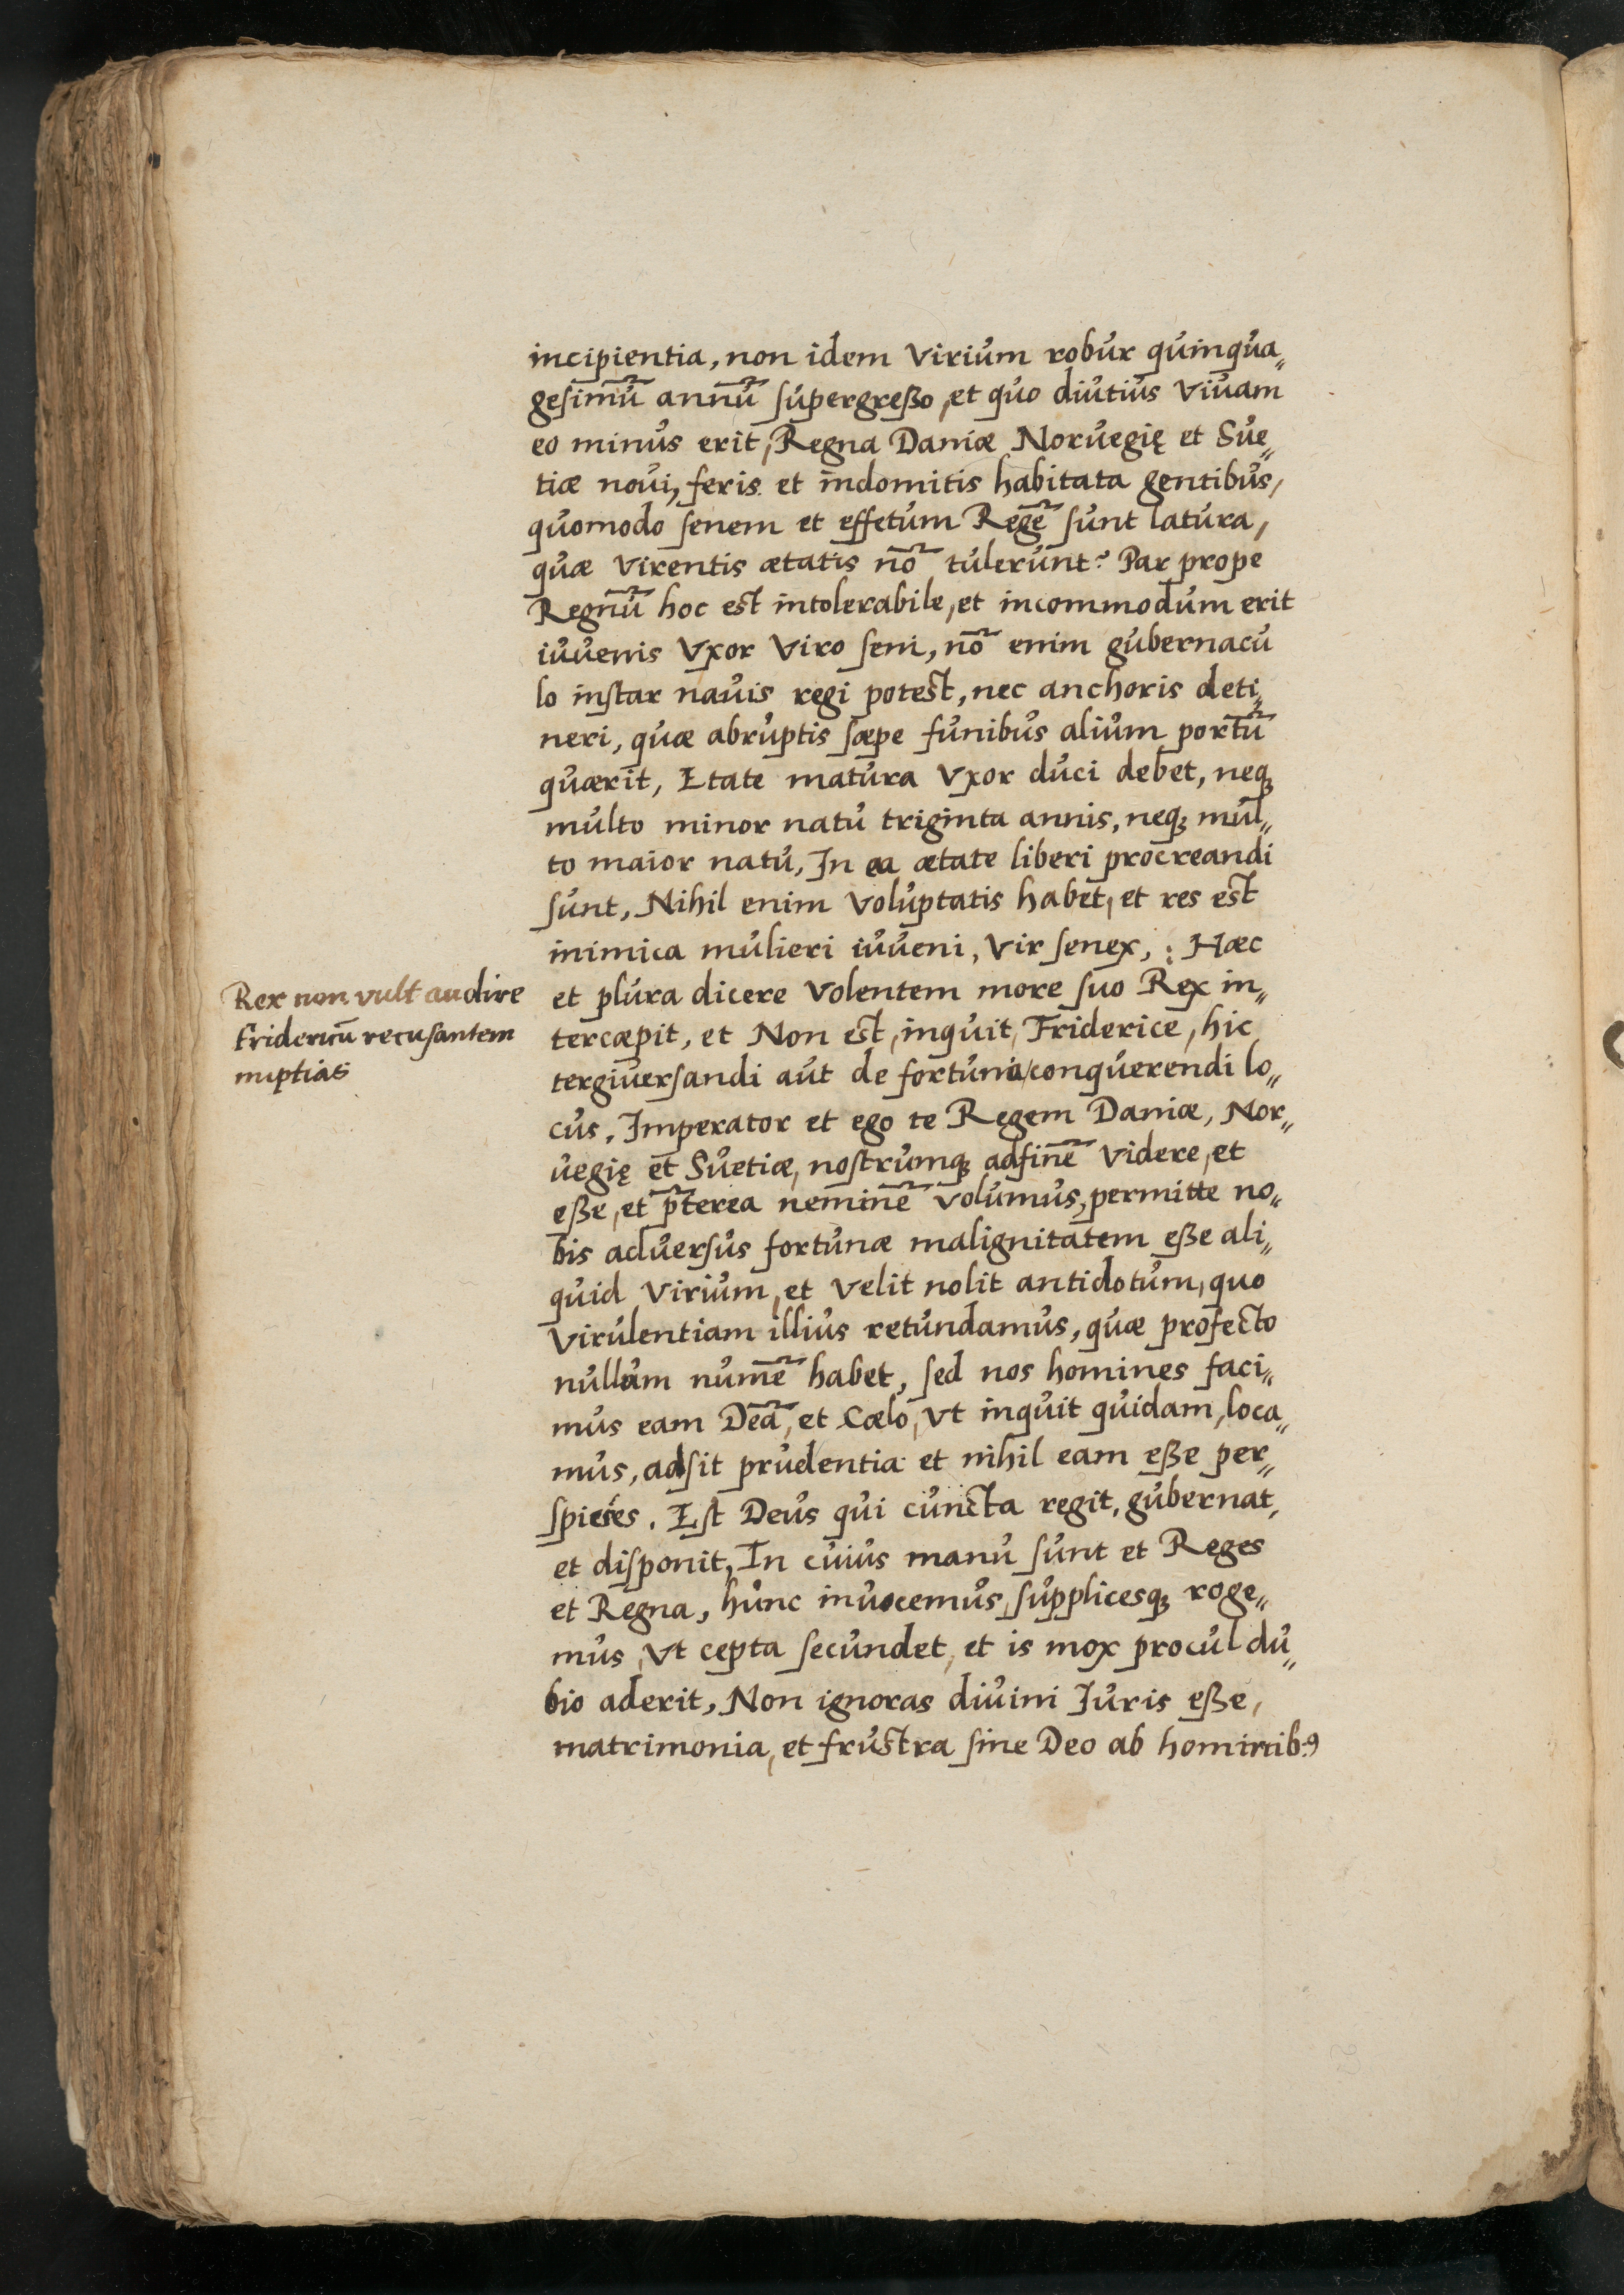 incipientia, non idem virium robur quinqua„
gesimū annū supergreßo, et quo diutius vivam
eo minus erit, Regna Daniæ Norvegię et Sue„
tiæ novi, feris et indomitis habitata gentibus,
quomodo senem et effetum Regē sunt latura,
quæ virentis ætatis nō tulerunt? Par prope
Regnū hoc est intolerabile, et incommodum erit
iuvenis Vxor viro seni, nō enim gubernacu
lo instar navis regi potest, nec anchoris deti„
neri, quæ abruptis sæpe funibus alium portū
quærit, Etate matura Vxor duci debet, neq;
multo minor natu triginta annis, neq; mul„
to maior natu, In ea ætate liberi procreandi
sunt, Nihil enim voluptatis habet, et res est
inimica mulieri iuveni, vir senex, : Hæc
Rex non vult audire
Fridericū recusantem
nuptias
et plura dicere volentem more suo Rex in„
tercæpit, et Non est, inquit, Friderice, hic
tergiuersandi aut de fortuna conquerendi lo„
cus. Imperator et ego te Regem Daniæ, Nor„
uegię et Suetiæ, nostrumq; adfinē videre, et
eße, et p̄terea neminē volumus, permitte no„
bis adversus fortunæ malignitatem eße ali„
quid virium, et velit nolit antidotum, quo
virulentiam illius retundamus, quæ profecto
nullum numē habet, sed nos homines faci„
mus eam Deā, et Cœlo, vt inquit quidam, loca„
mus, adsit prudentia et nihil eam eße per„
spicies. Est Deus qui cuncta regit, gubernat,
et disponit, In cuius manu sunt et Reges
et Regna, hunc invocemus, supplicesq; roge„
mus, vt cepta secundet, et is mox procul du„
bio aderit, Non ignoras divini Iuris eße,
matrimonia, et frustra sine Deo ab hominibꝰ